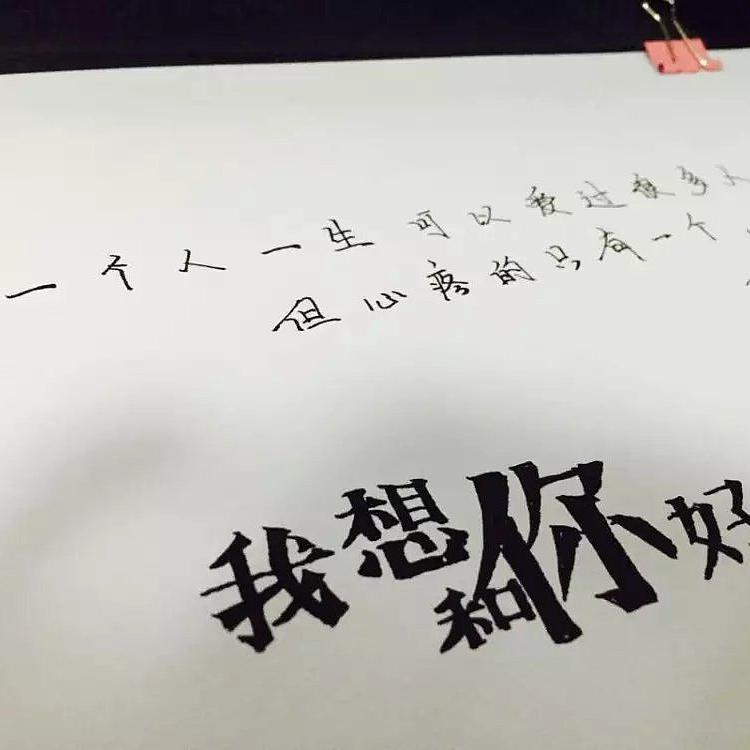 一个人一生可以爱过很多人
但心疼的只有一个
我想和你好